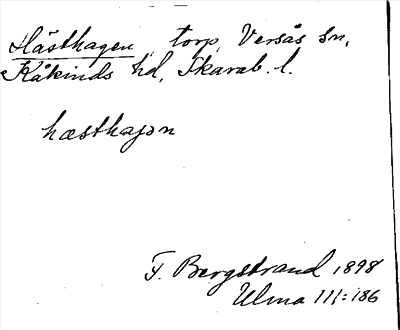 Hästhagen, torp, Versås sn,
Kåkinds hd, Skarab. l.
hæsthaȷən
T. Bergstrand 1898
Ulma 111:186